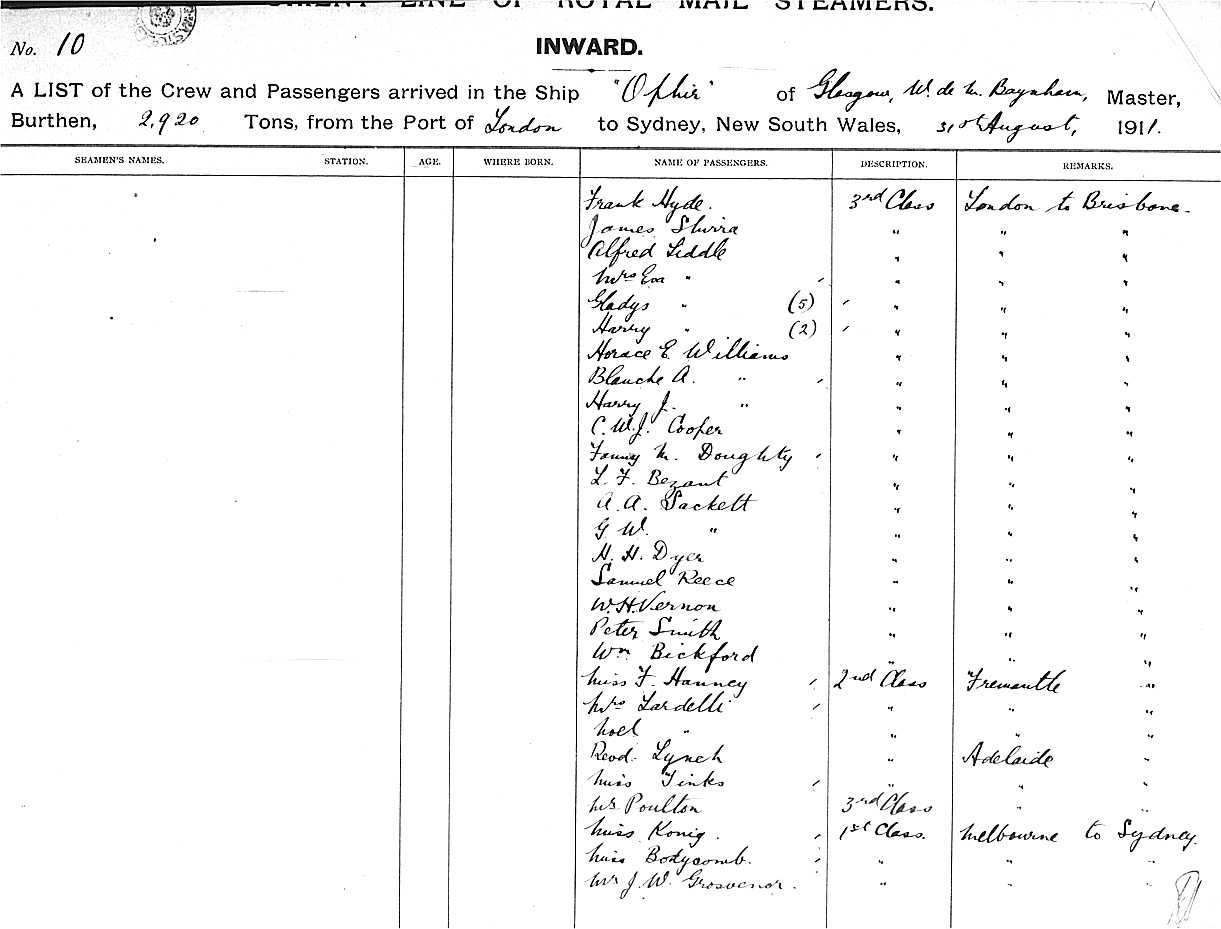 ORIENT LINE OF ROYAL MAIL STEAMERS.
No. 10
INWARD.
A LIST of the Crew and Passengers arrived in the Ship "Ophir" of Glasgow, W. de M. Baynham, Master,
Burthen, 2,920 Tons, from the Port of London to Sydney, New South Wales, 31st August, 1911.
SEAMEN'S NAMES. STATION. AGE. WHERE BORN. NAME OF PASSENGERS. DESCRIPTION. REMARKS.
Frank Hyde. 3rd Class London to Brisbane.
James " " "
Alfred Liddle " " "
Mrs Eva " " " "
Gladys " (5) " " "
Harry " (2) " " "
Horace E. Williams " " "
Blanche A. " " " "
Harry J. " " " "
C. W. J. Cooper " " "
Fanny M. Doughty " " "
L. F. Bezant " " "
A. A. Sackett " " "
G. W. " " " "
H. H. Dyer " " "
Samuel Reece " " "
W. H. Vernon " " "
Peter Smith " " "
Wm Bickford " " "
Miss F. Hanney 2nd Class Fremantle "
Mrs Tardelli " " "
Noel " " " "
Revd. Lynch " Adelaide "
Miss Tinks " " "
Mr Poulton 3rd Class " "
Miss Konig. 1st Class. Melbourne to Sydney.
Miss Bodycomb. " " "
Mr J. W. Grosvenor. " " "